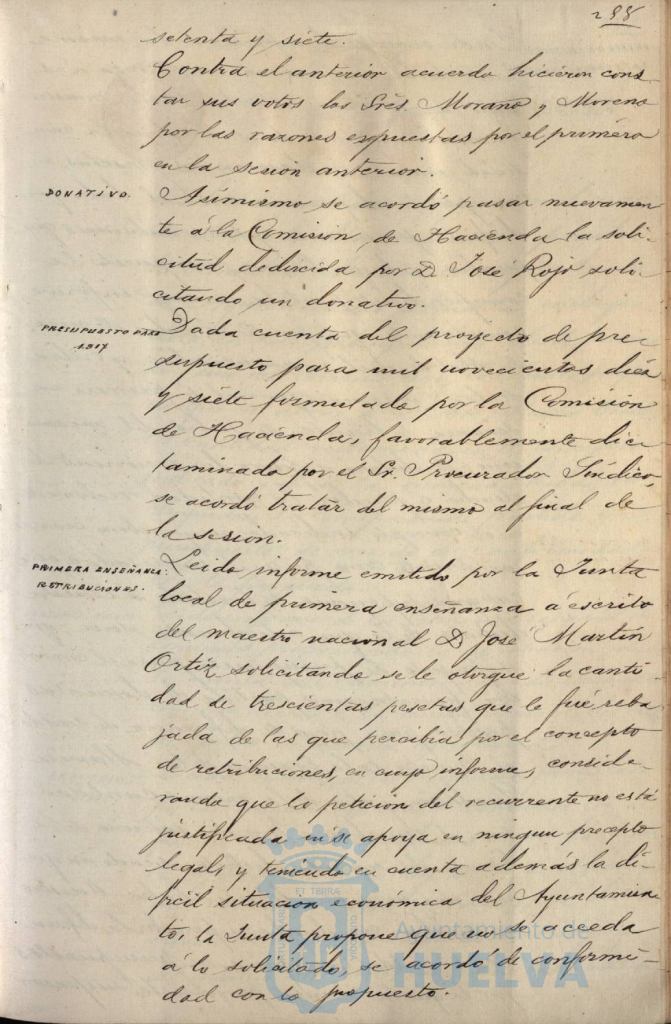 288
setenta y siete.
Contra el anterior acuerdo hicieron cons-
tar sus votos los Sres. Morano y Moreno
por las razones expuestas por el primero
en la sesion anterior.
DONATIVO.
Asimismo se acordó pasar nuevamen-
te á la Comision de Hacienda la soli-
citud deducida por D. José Rojo soli-
citando un donativo.
PRESUPUESTO PARA
1917
Dada cuenta del proyecto de pre-
supuesto para mil novecientos diez
y siete formulado por la Comisión
de Hacienda, favorablemente dic-
taminado por el Sr. Procurador Sindico,
se acordó tratar del mismo al final de
la sesion.
PRIMERA ENSEÑANZA.
RETRIBUCIONES.
Leido informe emitido por la Junta
local de primera enseñanza á escrito
del maestro nacional D José Martin
Ortiz solicitando se le otorgue la canti-
dad de trescientas pesetas que le fué reba
jada de las que percibia por el concepto
de retribuciones, en cuyo informe, conside-
rando que la peticion del recurrente no está
justificada ni se apoya en ningun precepto
legal, y teniendo en cuenta además la di-
ficil situacion económica del Ayuntamien
to, la Junta propone que no se acceda
á lo solicitado, se acordó de conformi-
dad con lo propuesto.
Ayuntamiento de
HUELVA